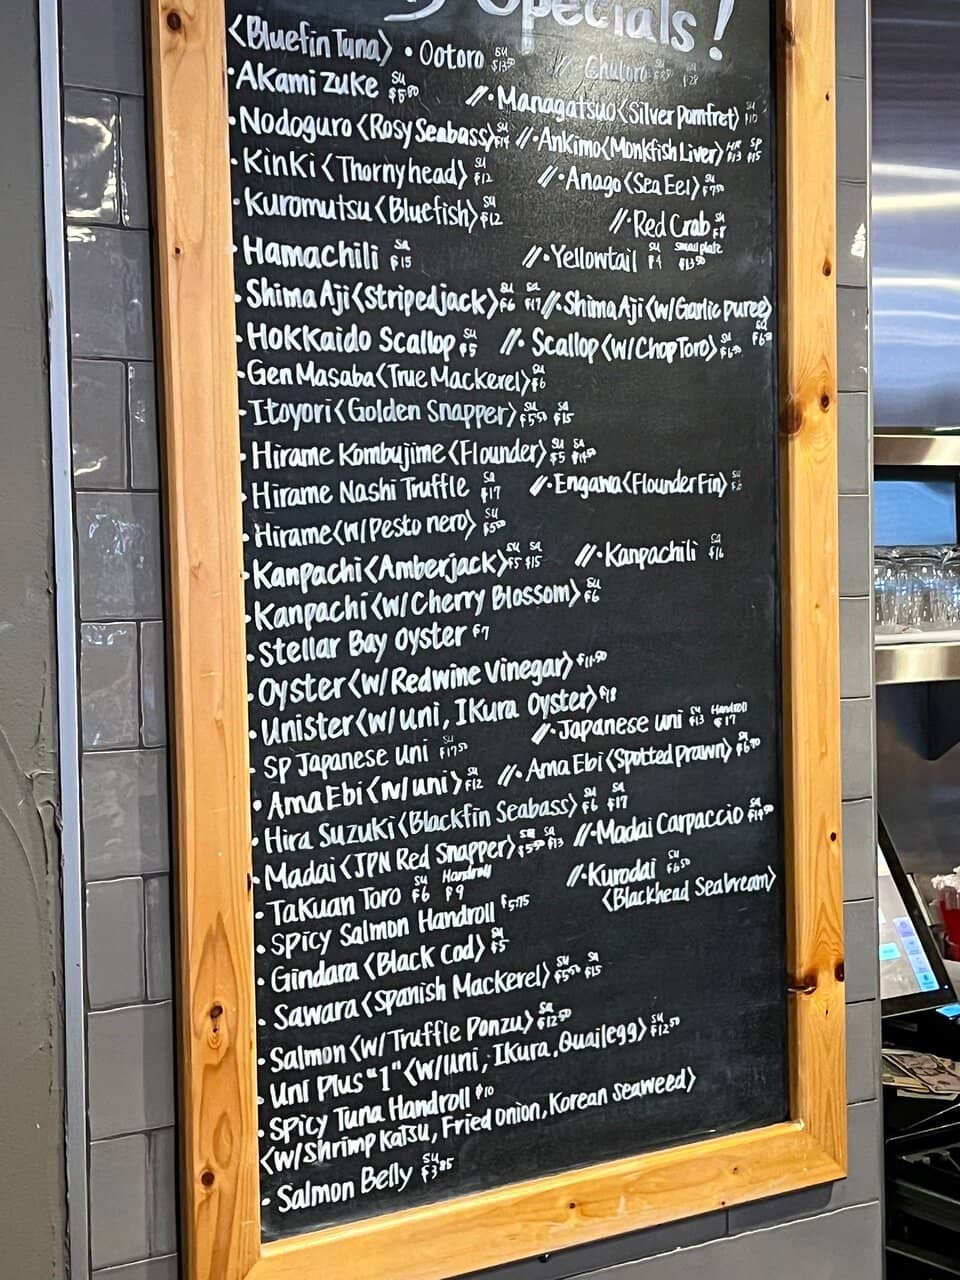 Specials!
<Bluefin Tuna> • Ootoro SU $13.50 // Chutoro
• Akami Zuke SU $5.50 // • Managatsuo <Silver Pomfret> SU $10
• Nodoguro <Rosy Seabass> SU $14 // • Ankimo <Monkfish Liver> HR $13 SP $15
• Kinki <Thornyhead> SU $12 // • Anago <Sea Eel> SU $7.50
• Kuromutsu <Bluefish> SU $12 // • Red Crab SU $8
• Hamachili SA $15 // • Yellowtail SU $4 Small plate $13.50
• Shima Aji <stripedjack> SU $6 SA $17 // • Shima Aji <w/Garlic puree> SU $6.50
• Hokkaido Scallop SU $5 // • Scallop <w/Chop Toro> SU $6.50
• Gen Masaba <True Mackerel> SU $6
• Itoyori <Golden Snapper> SU $5.50 SA $15
• Hirame Kombujime <Flounder> SU $5 SA $14.50
• Hirame Nashi Truffle SA $17 // • Engawa <Flounder Fin> SU $6
• Hirame <w/Pesto nero> SU $5.50
• Kanpachi <Amberjack> SU $5 SA $15 // • Kanpachili SA $16
• Kanpachi <w/Cherry Blossom> SU $6
• Stellar Bay Oyster $7
• Oyster <w/Redwine Vinegar> $11.50
• Unister <w/uni, Ikura Oyster> $18
• SP Japanese Uni SU $17.50 // • Japanese uni SU $13 Handroll $17
• Ama Ebi <w/uni> SU $12 // • Ama Ebi <Spotted Prawn> SU
• Hira Suzuki <Blackfin Seabass> SU $6 SA $17
• Madai <JPN Red Snapper> SU $5.50 SA $13 // • Madai Carpaccio SA $14.50
• Takuan Toro SU $6 Handroll $9 // • Kurodai SU $6.50
<Blackhead Seabream>
• Spicy Salmon Handroll $5.75
• Gindara <Black Cod> SU $5
• Sawara <Spanish Mackerel> SU $5.50 SA $15
• Salmon <w/Truffle Ponzu> SA $12.50
• Uni Plus "1" <w/Uni, Ikura, Quail egg> SU $12.50
• Spicy Tuna Handroll $10
<w/Shrimp Katsu, Fried Onion, Korean Seaweed>
• Salmon Belly SU $3.85